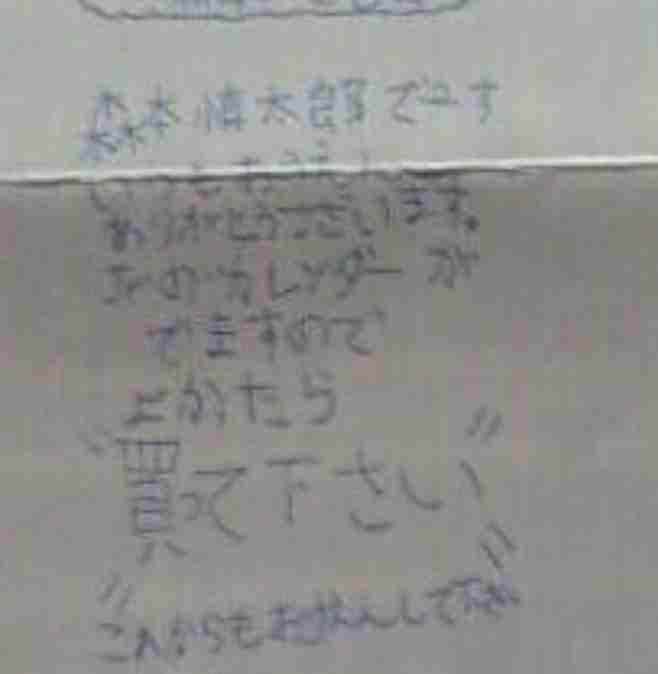 森本慎太郎でユす
いつもおうえん
ありがとうございます。
Jrのカレンダーが
でますので
よかたら
買って下さい
これからもおうえんして下さい